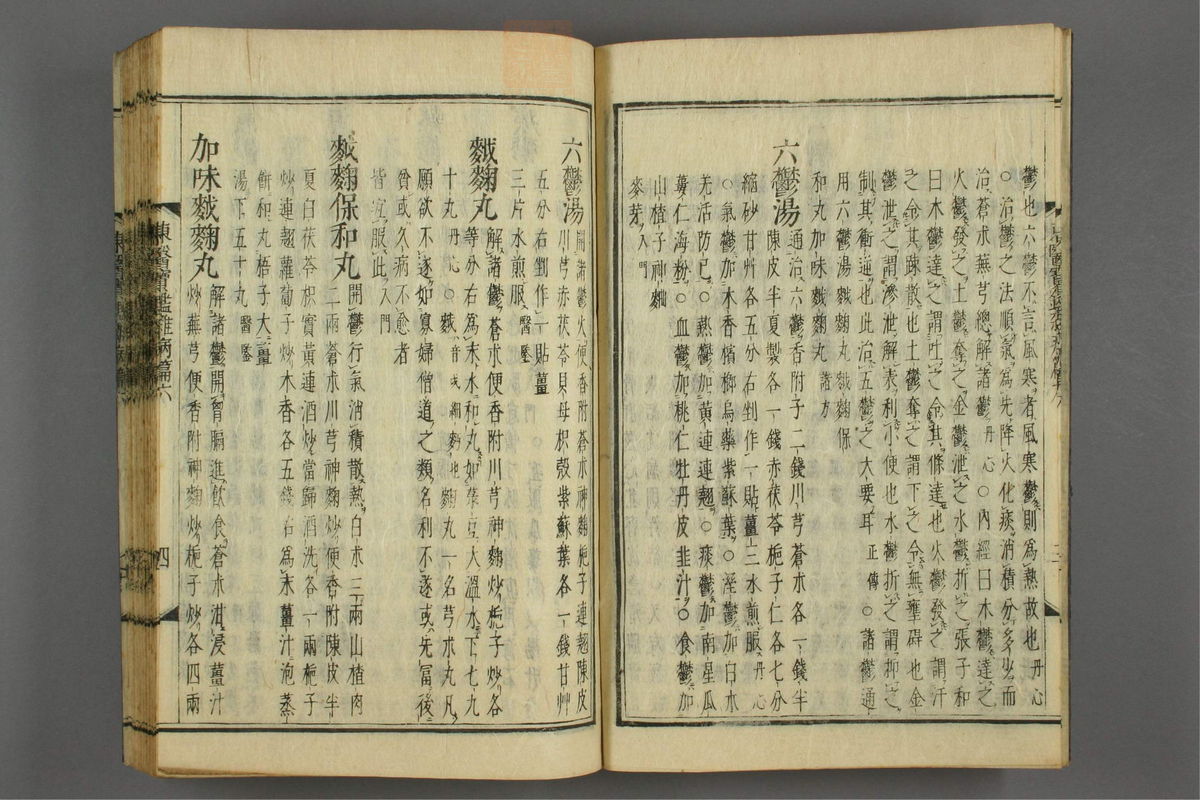 鬱也六鬱不言風寒者風寒鬱則爲熱故也丹心
○治鬱之法順氣爲先降火化痰消積分多少而
治蒼朮蕪芎總解諸鬱丹心○內經曰木鬱達之
火鬱發之土鬱奪之金鬱泄之水鬱折之張子和
曰木鬱達之謂吐之令其條達也火鬱發之謂汗
之令其疎散也土鬱奪之謂下之令無壅碍也金
鬱泄之謂滲泄解表利小便也水鬱折之謂抑之
制其衝逆也此治五鬱之大要耳正傳○諸鬱通
用六鬱湯䥘麴丸䥘麴保
和丸加味䥘麴丸諸方
六鬱湯通治六鬱香附子二錢川芎蒼朮各一錢半
陳皮半夏製各一錢赤茯苓梔子仁各七分
縮砂甘艸各五分右剉作一貼薑三水煎服丹心
○氣鬱加木香檳榔烏藥紫蘇葉○濕鬱加白朮
羌活防己○熱鬱加黃連連翹○痰鬱加南星瓜
蔞仁海粉○血鬱加桃仁牡丹皮韭汁○食鬱加
山楂子神麴
麥芽入門
六鬱湯開諸鬱火便香附蒼朮神麴梔子連翹陳皮
川芎赤茯苓貝母枳殼紫蘇葉各一錢甘艸
五分右剉作一貼薑
三片水煎服醫鑒
䥘麴丸解諸鬱蒼朮便香附川芎神麴炒梔子炒各
等分右爲末水和丸如菉豆大溫水下七九
十丸丹心○䥘音或細麥也麴丸一名芎朮丸凡
願欲不遂如寡婦僧道之類名利不遂或先富後
貧或久病不愈者
皆宜服此入門
䥘麴保和丸開鬱行氣消積散熱白朮三兩山楂肉
二兩蒼朮川芎神麴炒便香附陳皮半
夏白茯苓枳實黃連酒炒當歸酒洗各一兩梔子
炒連翹蘿葍子炒木香各五錢右爲末薑汁泡蒸
餠和丸梧子大薑
湯下五十丸醫鑒
加味䥘麴丸解諸鬱開胃膈進飮食蒼朮泔浸薑汁
炒蕪芎便香附神麴炒梔子炒各四兩
東醫寶鑑雜病篇六
四